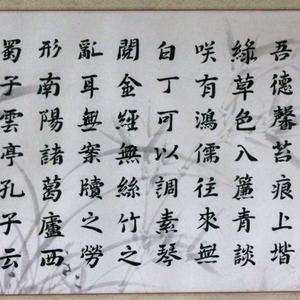 吾德馨苔痕上堦
綠草色入簾青談
咲有鴻儒往來無
白丁可以調素琴
閱金經無絲竹之
亂耳無案牘之勞
形南陽諸葛廬西
蜀子雲亭孔子云